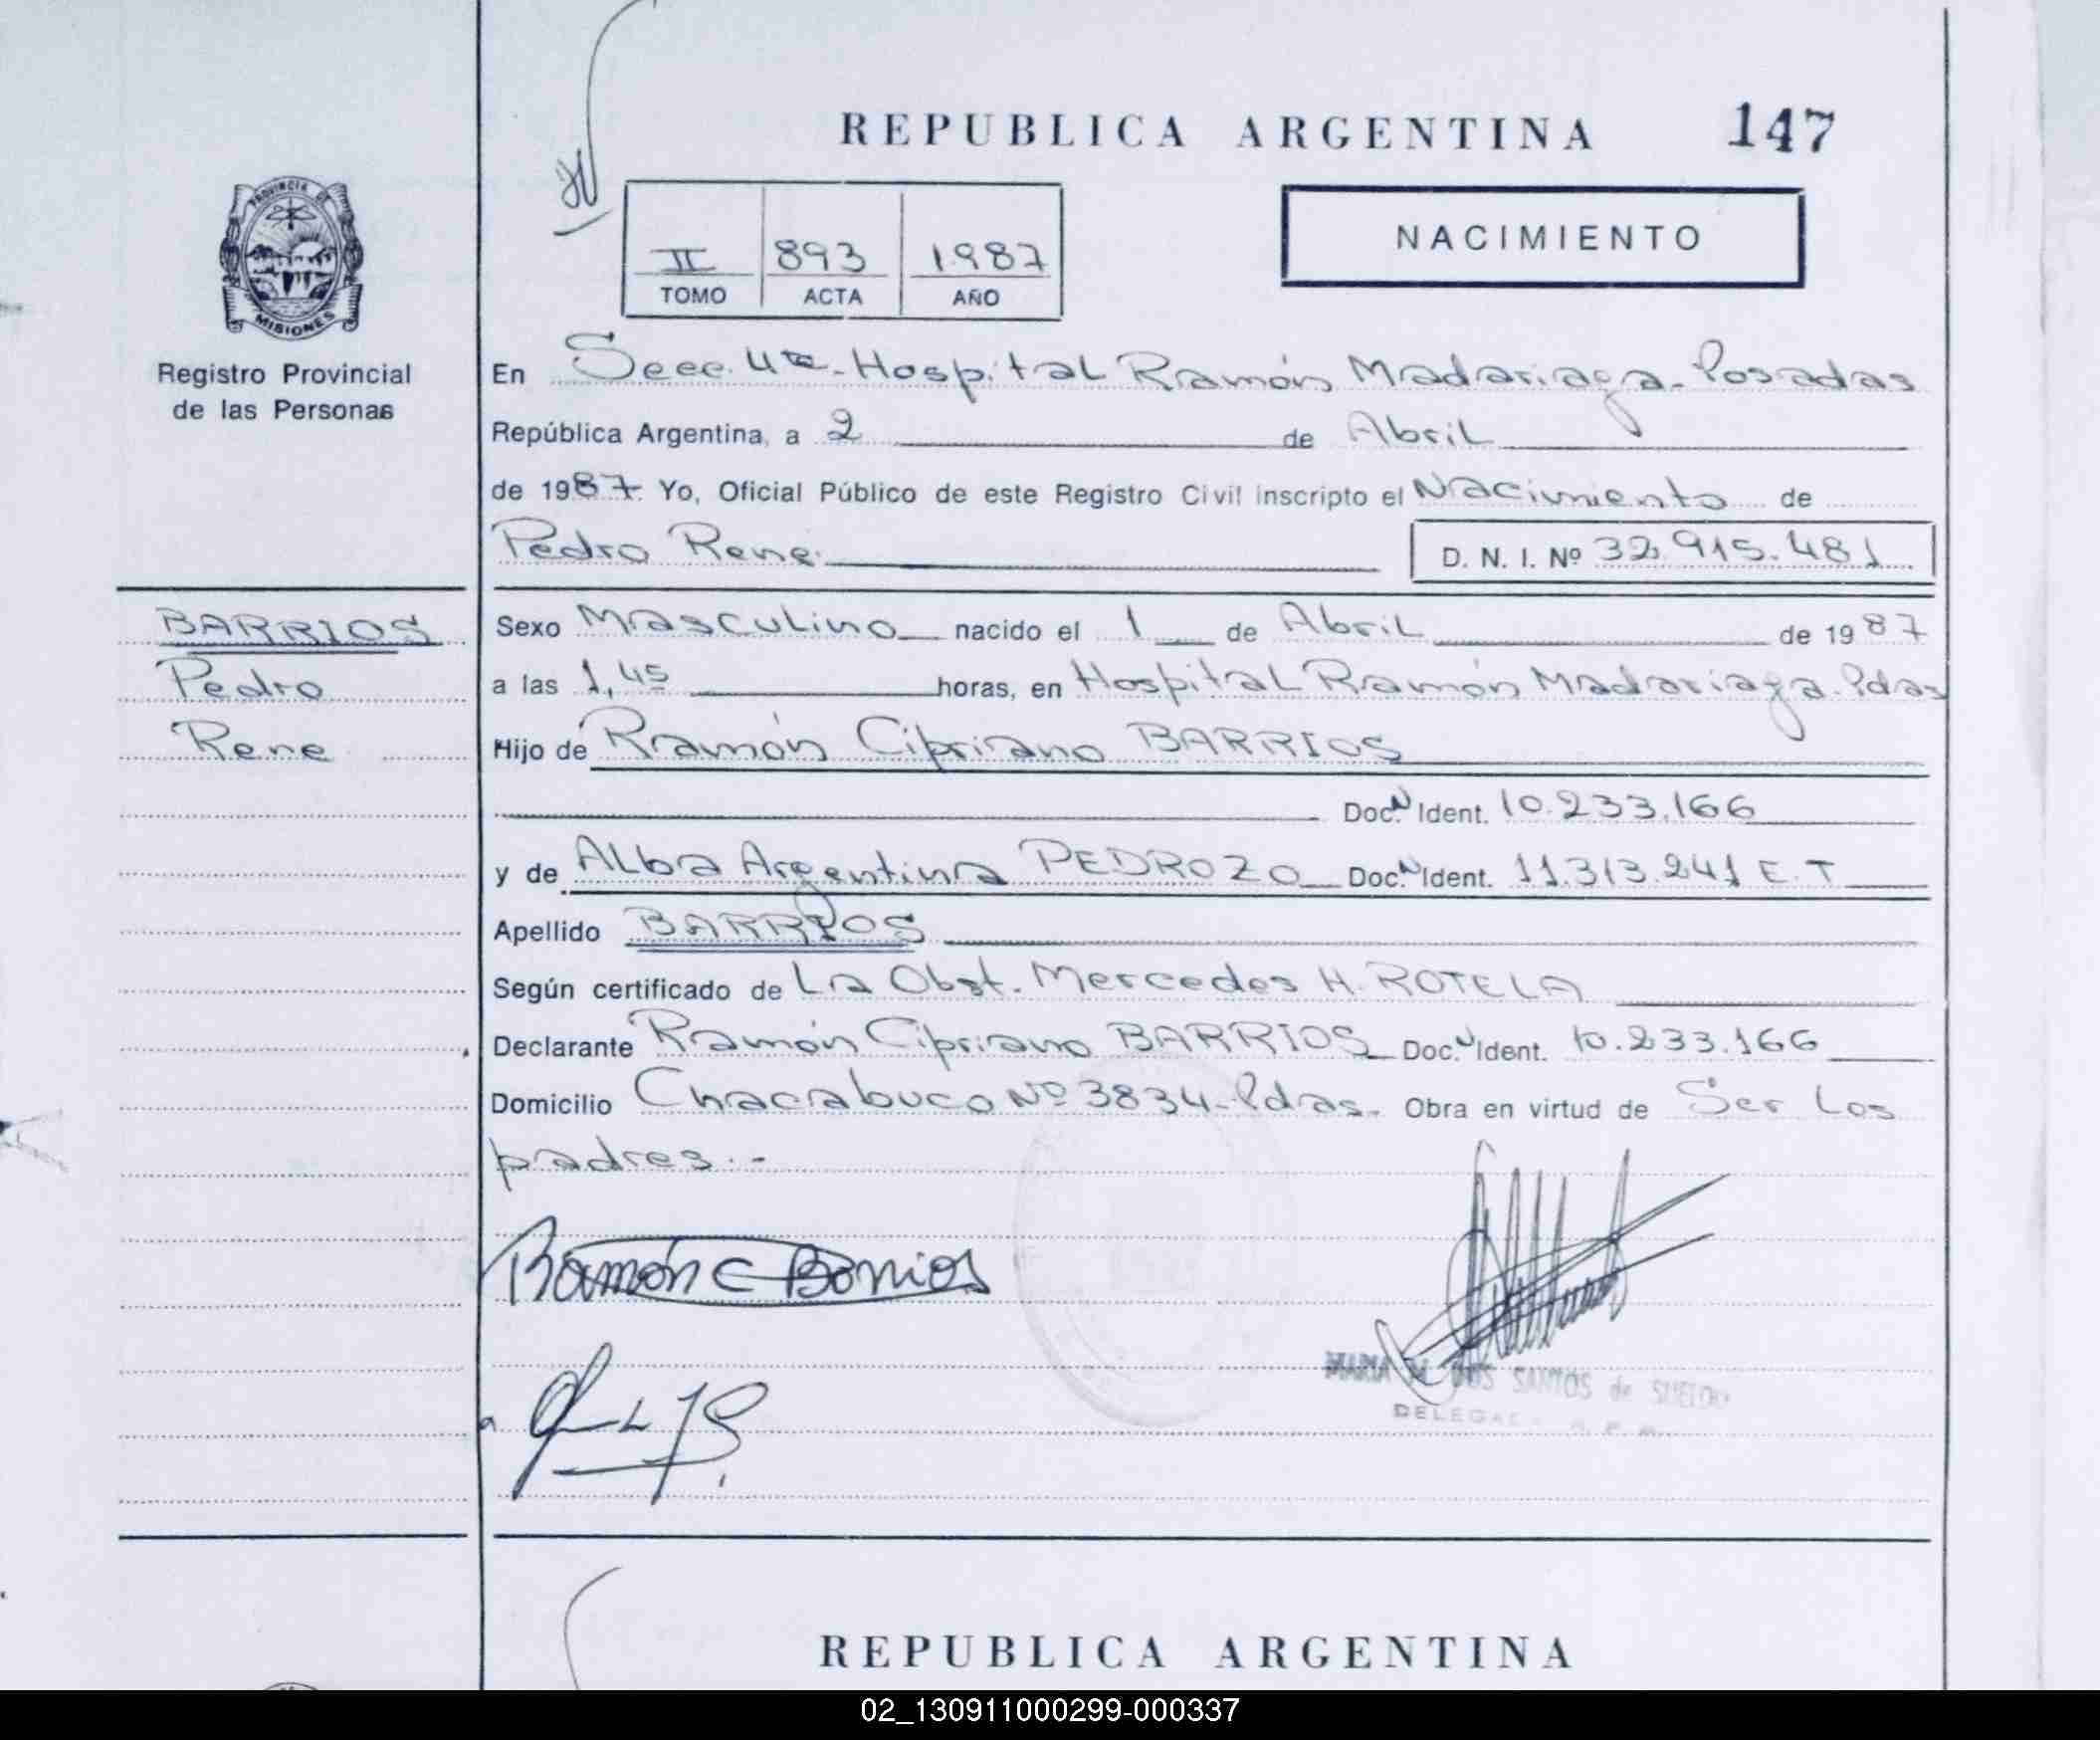 REPUBLICA ARGENTINA 147
PROVINCIA DE
MISIONES
Registro Provincial
de las Personas
II 893 1987
TOMO ACTA AÑO
NACIMIENTO
En Secc. 4ta. Hospital Ramón Madariaga. Posadas
República Argentina, a 2 de Abril
de 1987. Yo, Oficial Público de este Registro Civil inscripto el Nacimiento de
Pedro Rene. D. N. I. Nº 32.915.481
BARRIOS
Pedro
Rene
Sexo Masculino nacido el 1 de Abril de 1987
a las 1,45 horas, en Hospital Ramón Madariaga. Pdas
Hijo de Ramón Cipriano BARRIOS
Doc. N Ident. 10.233.166
y de ALba Argentina PEDROZO Doc. N Ident. 11.313.241 E.T
Apellido BARRIOS
Según certificado de La Obst. Mercedes H. ROTELA
Declarante Ramón Cipriano BARRIOS Doc. N Ident. 10.233.166
Domicilio Chacabuco Nº 3834. Pdas. Obra en virtud de Ser Los
padres.-
Ramón C Barrios
MARIA DOS SANTOS de
REPUBLICA ARGENTINA
02_130911000299-000337